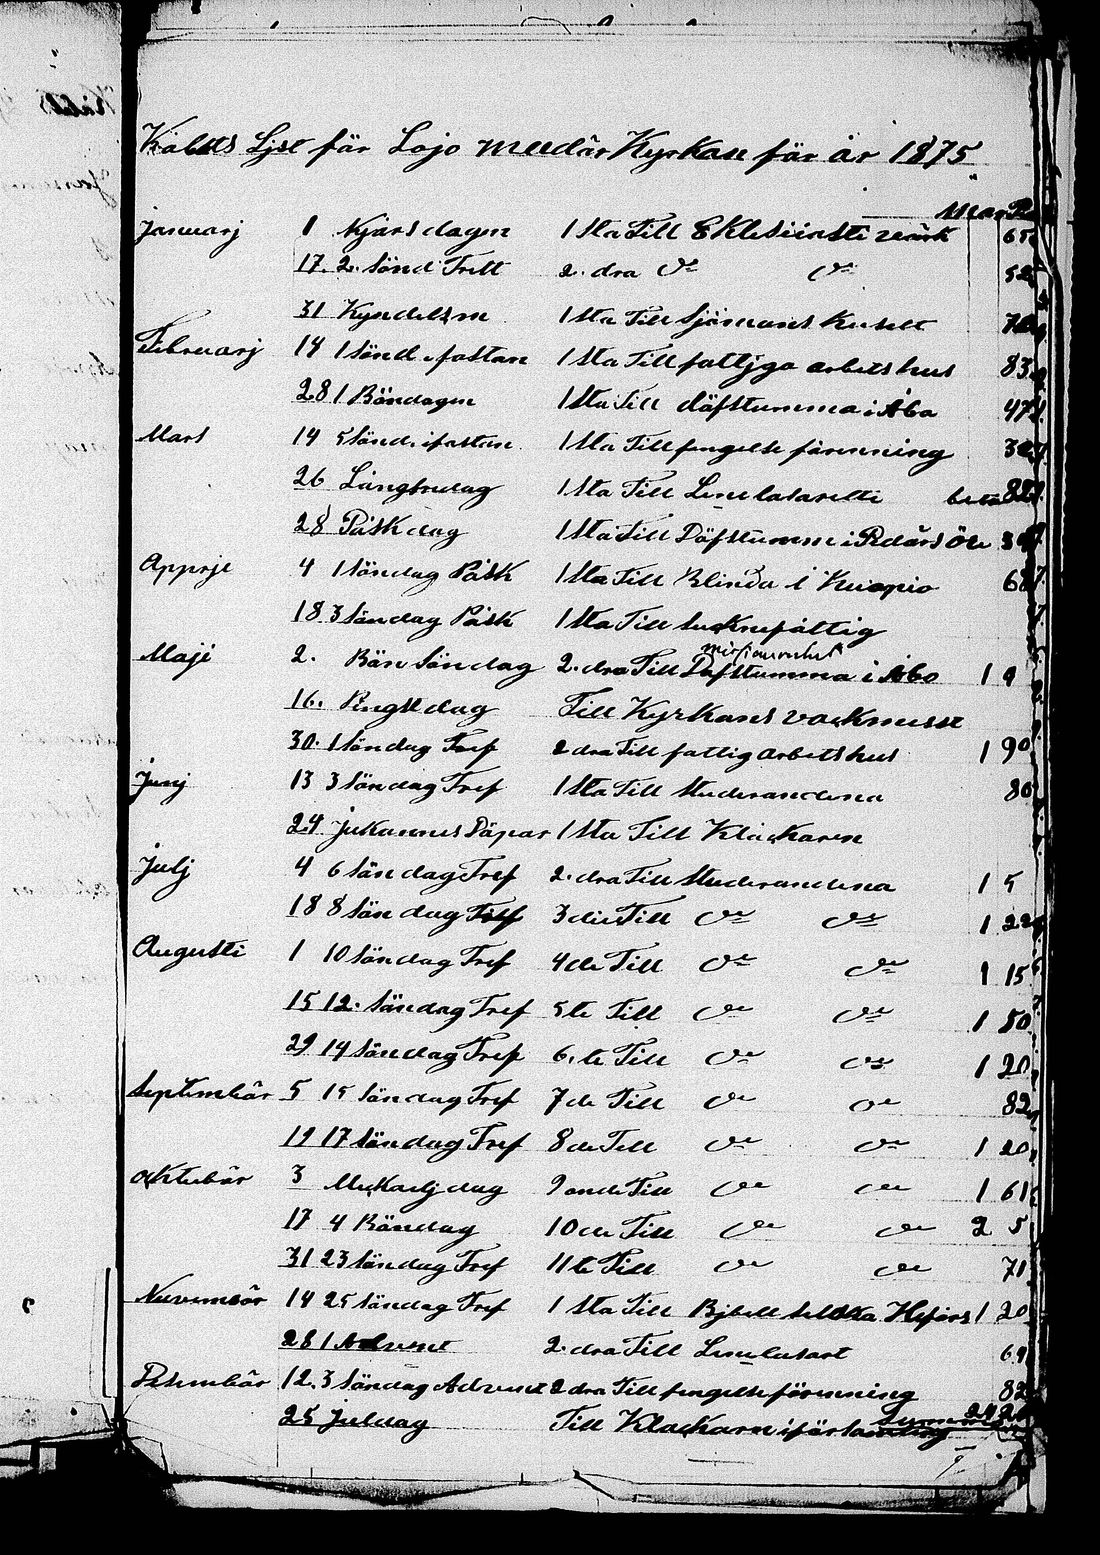 Kålds Ljst fär Lojo meedär Kyrkan fär år 1875
Mar P
Januarj 1 Njårsdagen 1 sta Till Eklesiasti värk 65
17. 2. Sönd Trett 2. dra Do Do 52
31 Kyndelsm 1 sta Till Sjömans Huset 70
Februarj 14 1 Sönd. fastan 1 sta Till fattjga arbetshus 83
28 1 Böndagen 1 sta Till döfstumma i Åbo 47
Mars 14 5 Sönd. i fastan 1 sta Till fengelse förenning
26 Långfredag 1 sta Till Lenslasarette
28 Påskdag 1 sta Till Döfstumm i Pedärs Öre
Apprje 4 1 Söndag Påsk 1 sta Till Blinda i Kuopio
18 3 Söndag Påsk 1 sta Till Suknefattig
Maji 2. Bän Söndag 2. dra Till Döfstumma i Åbo 1
16. Pingstdag Till Kyrkans vackmest
30. 1 Söndag Tref 2 dra Till fattig arbetshus 1 90
Junj 13 3 Söndag Tref 1 sta Till Studerandena 80
24 Juhannes Döpar 1 sta Till Klackaren
Julj 4 6 Söndag Tref 2. dra Till Studerandena 1 5
18 8 Söndag Tref 3 die Till Do Do 1 22
Augusti 1 10 Söndag Tref 4 de Till Do Do 1 15
15 12. Söndag Tref 5 te Till Do Do 1 50
29 14 Söndag Tref 6. te Till Do Do 1 20
Septembär 5 15 Söndag Tref 7 de Till Do Do 82
19 17 Söndag Tref 8 de Till Do Do 1 20
oktobär 3 Mickaelj dag 9 onde Till Do Do 1 61
17 4 Böndag 10 de Till Do Do 2 5
31 23 Söndag Tref 11 te Till Do Do 71
Nuvembär 14 25 Söndag Tref 1 sta Till Bjbell selska Hfors 1 20
28 1 Advent 2. dra Till Lenslasart 69
Desembär 12. 3 Söndag Advent 2 dra Till fengelse förenning 82
25 Juldag Till Klackaren i församling